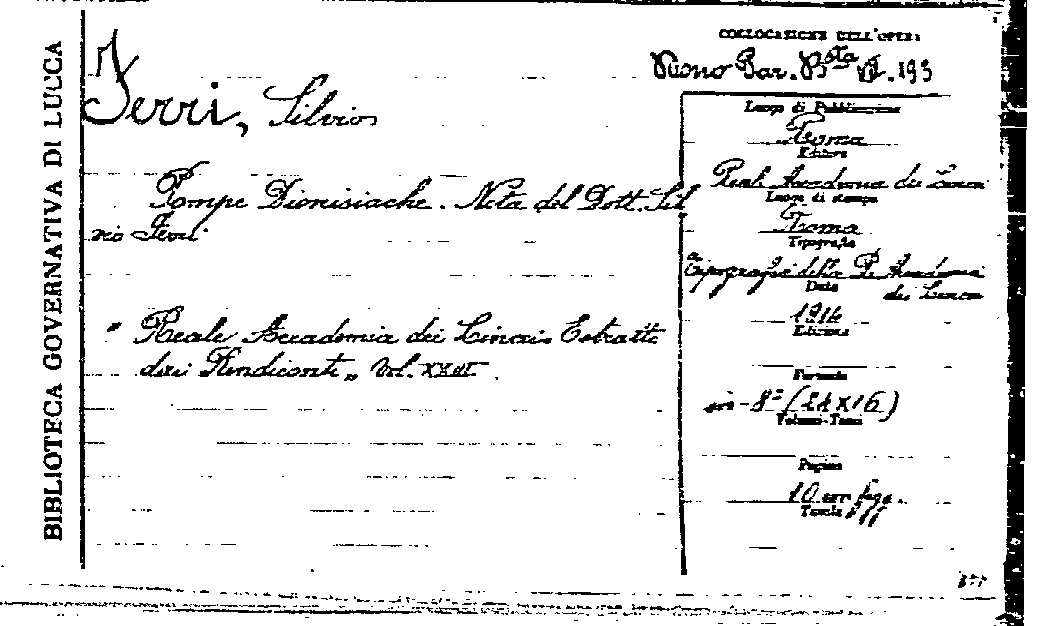 BIBLIOTECA GOVERNATIVA DI LUCCA
COLLOCAZIONE DELL'OPERA
Buono Bar. Bsta VII. 193
Ferri, Silvio
Pompe Dionisiache. Nota del Dott. Sil
vio Ferri
"Reale Accademia dei Lincei Estratto
dai Rendiconti" Vol. XXIII
Luogo di Pubblicazione
Roma
Editore
Reale Accademia dei Lincei
Luogo di stampa
Roma
Tipografia
Tipografia della R. Accademia
dei Lincei
Data
1914
Edizione
Formato
in-8° (24x16)
Volumi-Tomi
Pagine
10 con figg.
Tavole